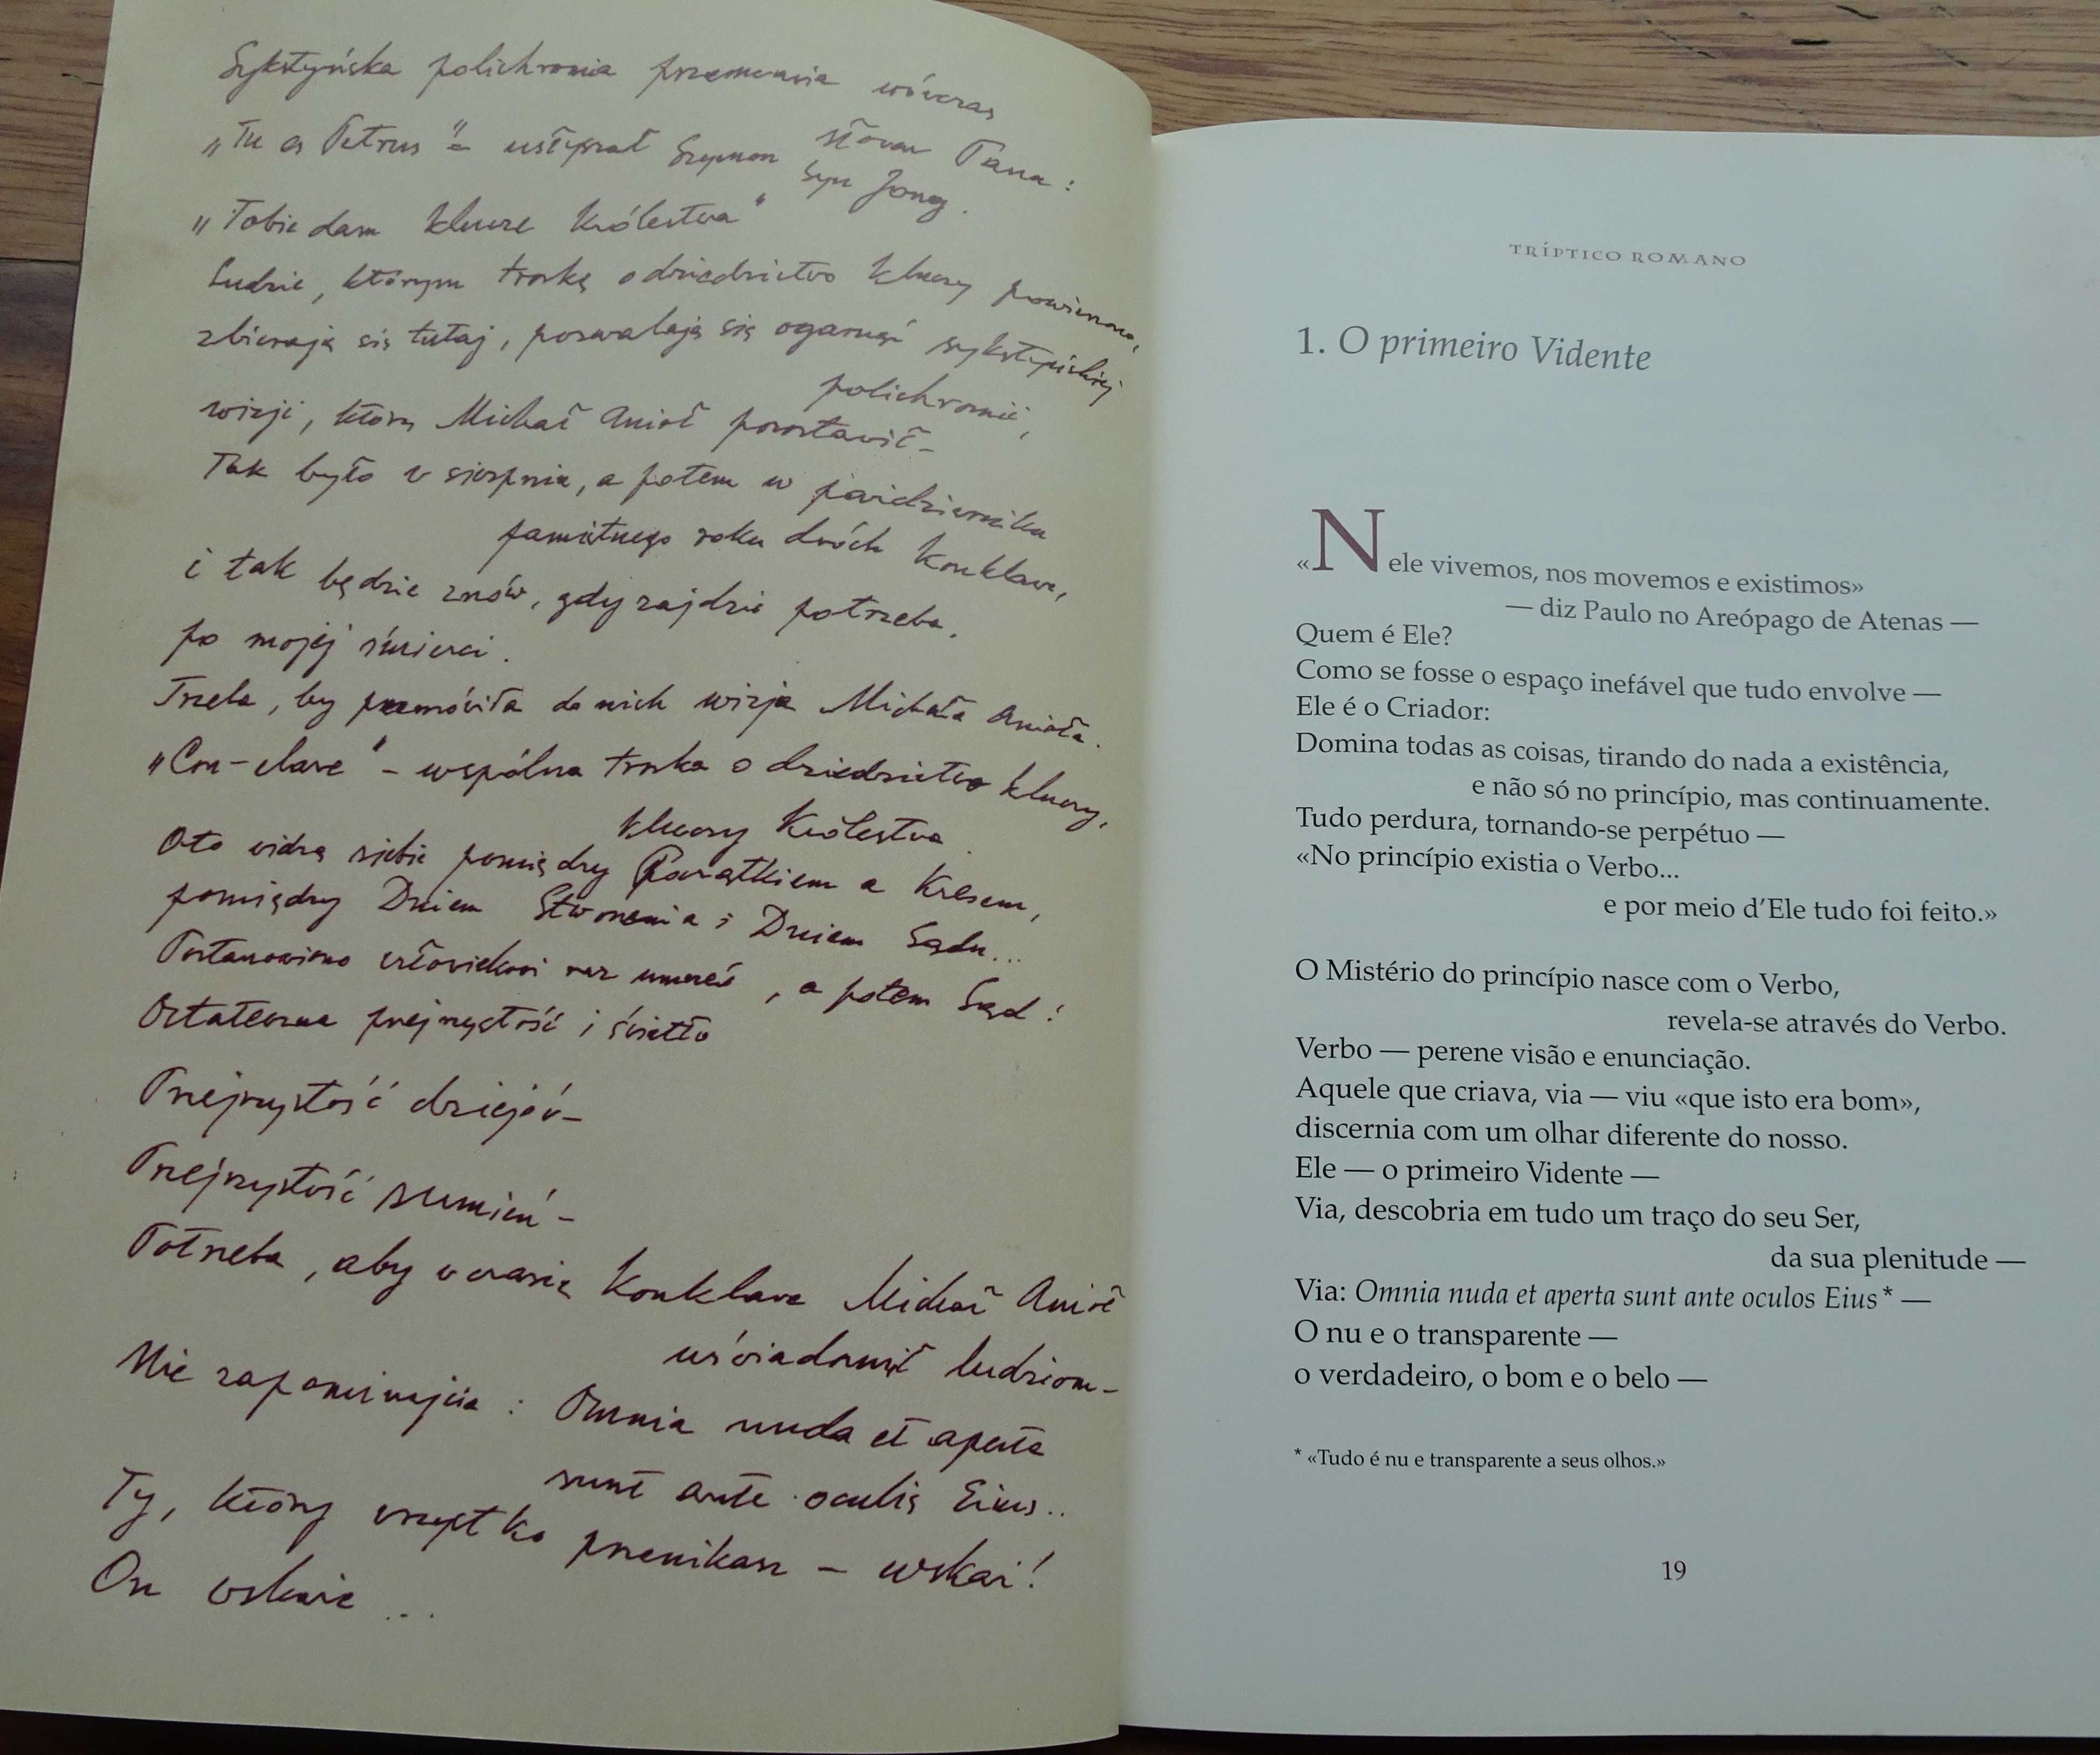 Sykstyńska polichromia przemawia wówczas
słowem Pana:
„Tu es Petrus" – usłyszał Szymon
syn Jony.
„Tobie dam klucze Królestwa"
Ludzie, którym troskę o dziedzictwo kluczy powierzono,
zbierają się tutaj, pozwalają się ogarnąć sykstyńskiej
polichromii,
wizji, którą Michał Anioł pozostawił –
Tak było w sierpniu, a potem w październiku
pamiętnego roku dwóch konklawe,
i tak będzie znów, gdy zajdzie potrzeba,
po mojej śmierci.
Trzeba, by przemówiła do nich wizja Michała Anioła.
„Con-clave" – wspólna troska o dziedzictwo kluczy,
kluczy Królestwa.
Oto widzą siebie pomiędzy Początkiem a Kresem,
pomiędzy Dniem Stworzenia i Dniem Sądu...
Postanowiono człowiekowi raz umrzeć, a potem Sąd!
Ostateczna przejrzystość i światło
Przejrzystość dziejów –
Przejrzystość sumień –
Potrzeba, aby w czasie konklawe Michał Anioł
uświadomił ludziom –
Nie zapominajcie: Omnia nuda et aperta
sunt ante oculis Eius..
Ty, który wszystko przenikasz – wskaż!
On wskaże...
TRÍPTICO ROMANO
1. O primeiro Vidente
«Nele vivemos, nos movemos e existimos»
— diz Paulo no Areópago de Atenas —
Quem é Ele?
Como se fosse o espaço inefável que tudo envolve —
Ele é o Criador:
Domina todas as coisas, tirando do nada a existência,
e não só no princípio, mas continuamente.
Tudo perdura, tornando-se perpétuo —
«No princípio existia o Verbo...
e por meio d'Ele tudo foi feito.»
O Mistério do princípio nasce com o Verbo,
revela-se através do Verbo.
Verbo — perene visão e enunciação.
Aquele que criava, via — viu «que isto era bom»,
discernia com um olhar diferente do nosso.
Ele — o primeiro Vidente —
Via, descobria em tudo um traço do seu Ser,
da sua plenitude —
Via: Omnia nuda et aperta sunt ante oculos Eius* —
O nu e o transparente —
o verdadeiro, o bom e o belo —
* «Tudo é nu e transparente a seus olhos.»
19